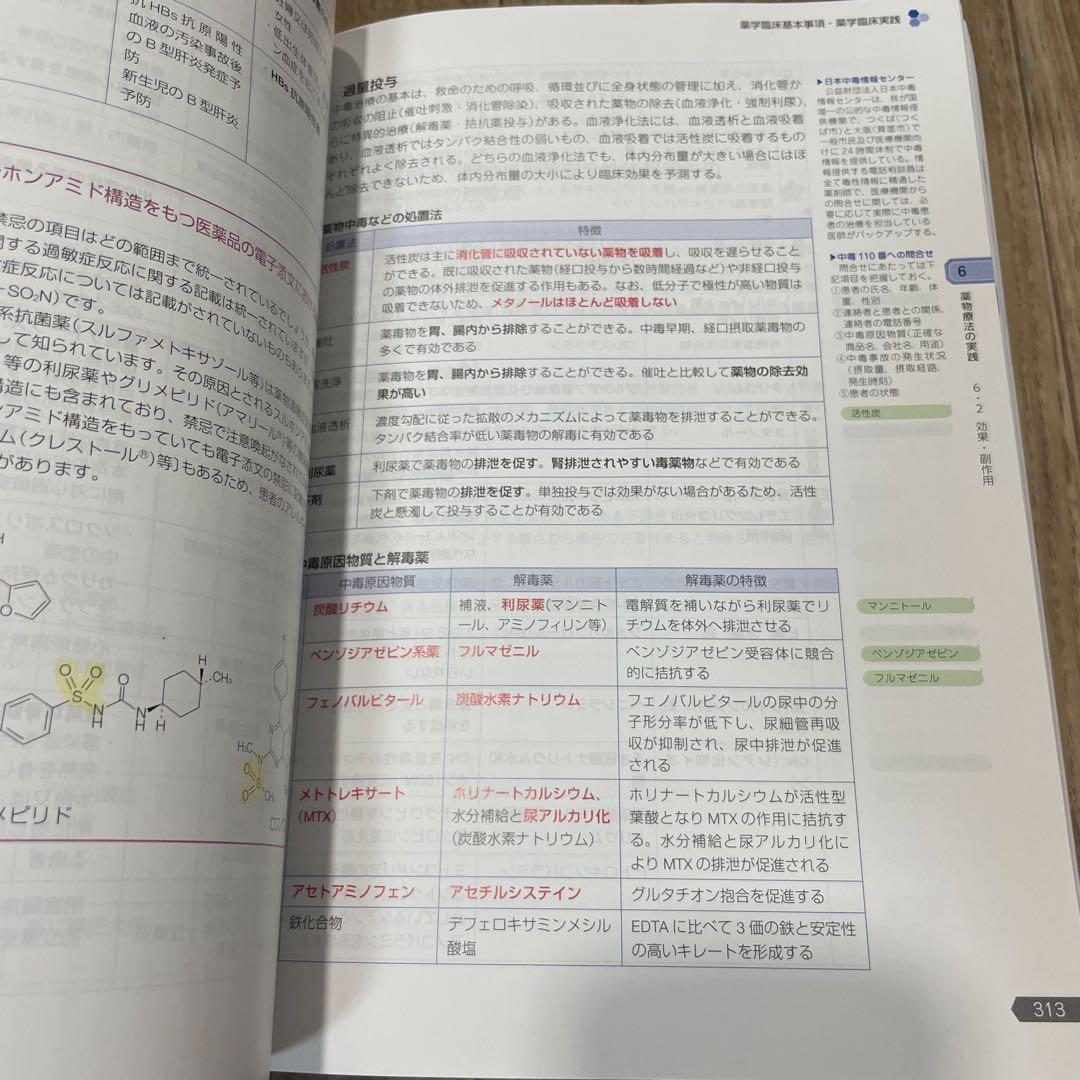 抗HBs抗原陽性
血液の汚染事故後
のB型肝炎発症予
防
新生児のB型肝炎
予防
女性
・低出生体重
HBs抗原
ホンアミド構造をもつ医薬品の電子添文に
禁忌の項目はどの範囲まで統一されているでしょうか
する過敏症反応に関する記載は統一されて
症反応については記載がされていないものもあります
-SO₂N)です。
系抗菌薬(スルファメトキサゾール等)は薬物
して知られています。その原因とされるスルホン
等の利尿薬やグリメピリド(アマリール®)等の
構造にも含まれており、禁忌で注意喚起がなされて
アミド構造をもっていても電子添文の禁忌に記載
ム(クレストール®)等]もあるため、患者のアレル
があります。
H
O
O O
S
N
H
O
N
H
H
CH₃
H
H₃C
N
O
S
O
CH₃
F
メピリド
薬学臨床基本事項・薬学臨床実践
過量投与
中毒治療の基本は、救命のための呼吸、循環並びに全身状態の管理に加え、消化管か
の吸収の阻止(催吐刺激・消化管除染)、吸収された薬物の除去(血液浄化・強制利尿)、
らに特異的治療(解毒薬・拮抗薬投与)がある。血液浄化法には、血液透析と血液吸着
あり、血液透析ではタンパク結合性の弱いもの、血液吸着では活性炭に吸着するもの
それぞれよく除去される。どちらの血液浄化法でも、体内分布量が大きい場合にはほ
んど除去できないため、体内分布量の大小により臨床効果を予測する。
薬物中毒などの処置法
処置法 特徴
活性炭 活性炭は主に消化管に吸収されていない薬物を吸着し、吸収を遅らせること
ができる。既に吸収された薬物(経口投与から数時間経過など)や非経口投与
の薬物の体外排泄を促進する作用もある。なお、低分子で極性が高い物質は
吸着できないため、メタノールはほとんど吸着しない
催吐 薬毒物を胃、腸内から排除することができる。中毒早期、経口摂取薬毒物の
多くで有効である
胃洗浄 薬毒物を胃、腸内から排除することができる。催吐と比較して薬物の除去効
果が高い
血液透析 濃度勾配に従った拡散のメカニズムによって薬毒物を排泄することができる。
タンパク結合率が低い薬毒物の解毒に有効である
利尿薬 利尿薬で薬毒物の排泄を促す。腎排泄されやすい毒薬物などで有効である
下剤 下剤で薬毒物の排泄を促す。単独投与では効果がない場合があるため、活性
炭と懸濁して投与することが有効である
中毒原因物質と解毒薬
中毒原因物質 解毒薬 解毒薬の特徴
炭酸リチウム 補液、利尿薬(マンニト 電解質を補いながら利尿薬でリ
ール、アミノフィリン等) チウムを体外へ排泄させる
ベンゾジアゼピン系薬 フルマゼニル ベンゾジアゼピン受容体に競合
的に拮抗する
フェノバルビタール 炭酸水素ナトリウム フェノバルビタールの尿中の分
子形分率が低下し、尿細管再吸
収が抑制され、尿中排泄が促進
される
メトトレキサート ホリナートカルシウム、 ホリナートカルシウムが活性型
(MTX) 水分補給と尿アルカリ化 葉酸となりMTXの作用に拮抗す
(炭酸水素ナトリウム) る。水分補給と尿アルカリ化に
よりMTXの排泄が促進される
アセトアミノフェン アセチルシステイン グルタチオン抱合を促進する
鉄化合物 デフェロキサミンメシル EDTAに比べて3価の鉄と安定性
酸塩 の高いキレートを形成する
▶日本中毒情報センター
公益財団法人日本中毒
情報センターは、我が国
唯一の公的な中毒情報提
供機関で、つくば(つく
ば市)と大阪(箕面市)で
一般市民及び医療機関向
けに24時間体制で中毒
情報を提供している。情
報提供する電話相談員は
全て毒性情報に精通した
薬剤師で、医療機関から
の問合せに関しては、必
要に応じて実際に中毒患
者の治療を担当している
医師がバックアップする。
▶中毒110番への問合せ
問合せにあたっては下
記項目を把握しておく。
①患者の氏名、年齢、体
重、性別
②連絡者と患者との関係、
連絡者の電話番号
③中毒原因物質(正確な
商品名、会社名、用途)
④中毒事故の発生状況
(摂取量、摂取経路、
発生時刻)
⑤患者の状態
活性炭
マンニトール
ベンゾジアゼピン
フルマゼニル
6
薬物療法の実践
6・2 効果・副作用
313